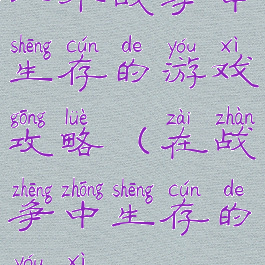 shēng cún de yóu xì
生存的游戏
gōng lüè zài zhàn
攻略(在战
zhēng zhōng shēng cún de
争中生存的
yóu xì